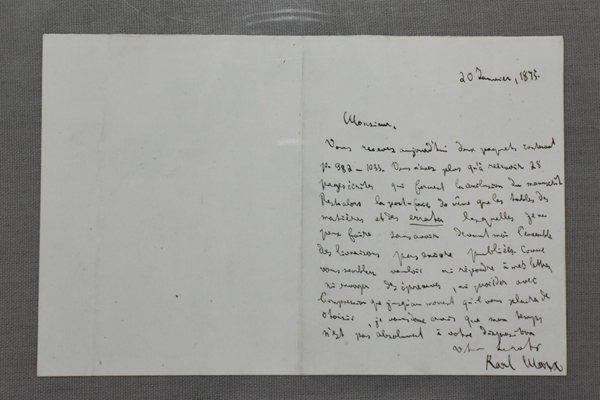 20 Janvier, 1875.
Monsieur,
Vous recevez aujourd'hui deux paquets contenant
p. 982 – 1033. Vous n'avez plus qu'à recevoir 28
pages écrites qui forment la conclusion du manuscrit
Resteralors la post-face de même que les tables des
matières et des errata lesquelles je ne
peux faire sans avoir devant moi l'ensemble
des livraisons pas encore publiées. Comme
vous semblez vouloir ni répondre à mes lettres,
ni envoyer des épreuves, ni procéder avec
l'impression que jusqu'au moment qu'il vous plaira de
choisir, je vous donne avis que mon temps
n'est pas absolument à votre disposition
Votre
Karl Marx